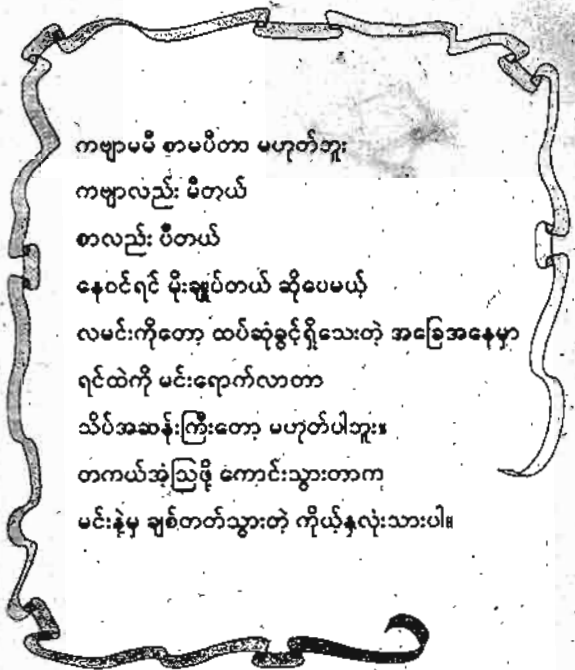 ကဗျာမမီ စာမပီတာ မဟုတ်ဘူး
ကဗျာလည်း မီတယ်
စာလည်း ပီတယ်
နေဝင်ရင် မိုးချုပ်တယ် ဆိုပေမယ့်
လမင်းကိုတော့ ထပ်ဆုံခွင့်ရှိသေးတဲ့ အခြေအနေမှာ
ရင်ထဲကို မင်းရောက်လာတာ
သိပ်အဆန်းကြီးတော့ မဟုတ်ပါဘူး။
တကယ်အံ့ဩဖို့ ကောင်းသွားတာက
မင်းနဲ့မှ ချစ်တတ်သွားတဲ့ ကိုယ့်နှလုံးသားပါ။